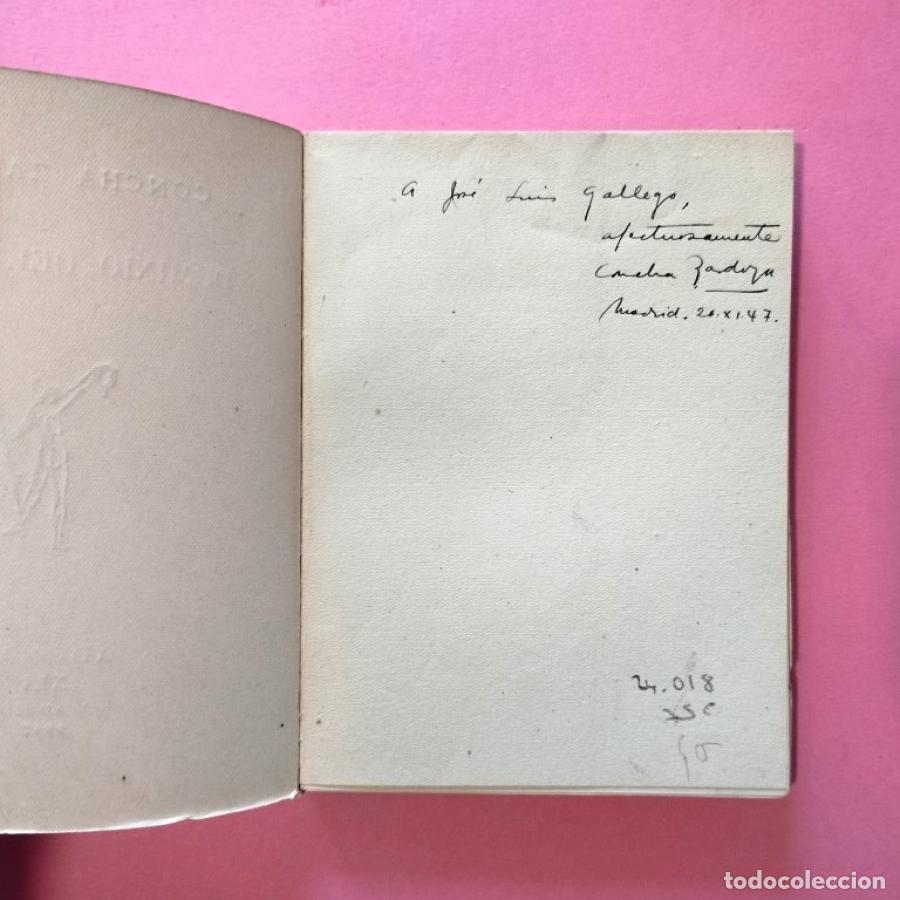 CONCHA ZA
DOMINIO DEL
A José Luis Gallego,
afectuosamente
Concha Zardoya
Madrid. 20.XI.47.
24.018
XSC
todocoleccion